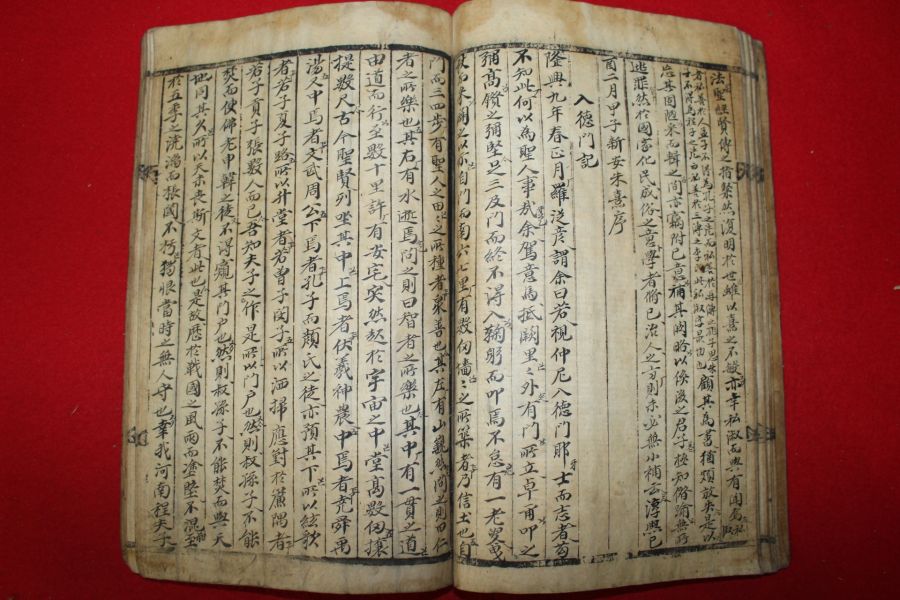 法聖經賢傳之指粲然復明於世雖以熹之不敏亦幸私淑而與有聞焉
顧其爲書猶頗放失是以
忘其固陋采而輯之間言竊附己意補其闕略以俟後之君子極知僭踰無所
逃罪然於國家化民成俗之意學者修己治人之方則未必無小補云淳熙己
酉二月甲子新安朱熹序
入德門記
隆興九年春正月羅從彦謂余曰若視仲尼入德門耶士而志者苟
不知此何以為聖人事哉余駕意馬抵闕里々外有門所立卓甫叩之
彌高鑽之彌堅足三及門而終不得入鞠躬而叩焉不怠有一老叟曳
杖而来開之以自門而南六七里有數仞墻々之所築者乃信土也自
門而三四步有聖人之田々之所種者衆善也其左有山巍然問之則曰仁
者之所樂也其右有水逝焉問之則曰智者之所樂也其中有一貫之道
由道而行至數十里許有安宅突然起於宇宙之中堂高數仞榱
提數尺古今聖賢列坐其中上焉者伏羲神農中焉者堯舜禹
湯又中焉者文武周公下焉者孔子而顔氏之徒亦預其下所以絃歌
者若子夏子路所以升堂者若曾子閔子所以洒掃應對於隅者
若子貢子張數人而已吾知夫子之作是所以門户也然則叔孫子不能
焚而使佛老申韓之徒不得窺其門户也然則叔孫子不能焚而與天
地同其久所以天未喪斯文者此也是故歷於戰國之風雨而塗墍不混至
於五季之洗湯而張國不朽獨恨當時之無人守也幸我河南程夫子